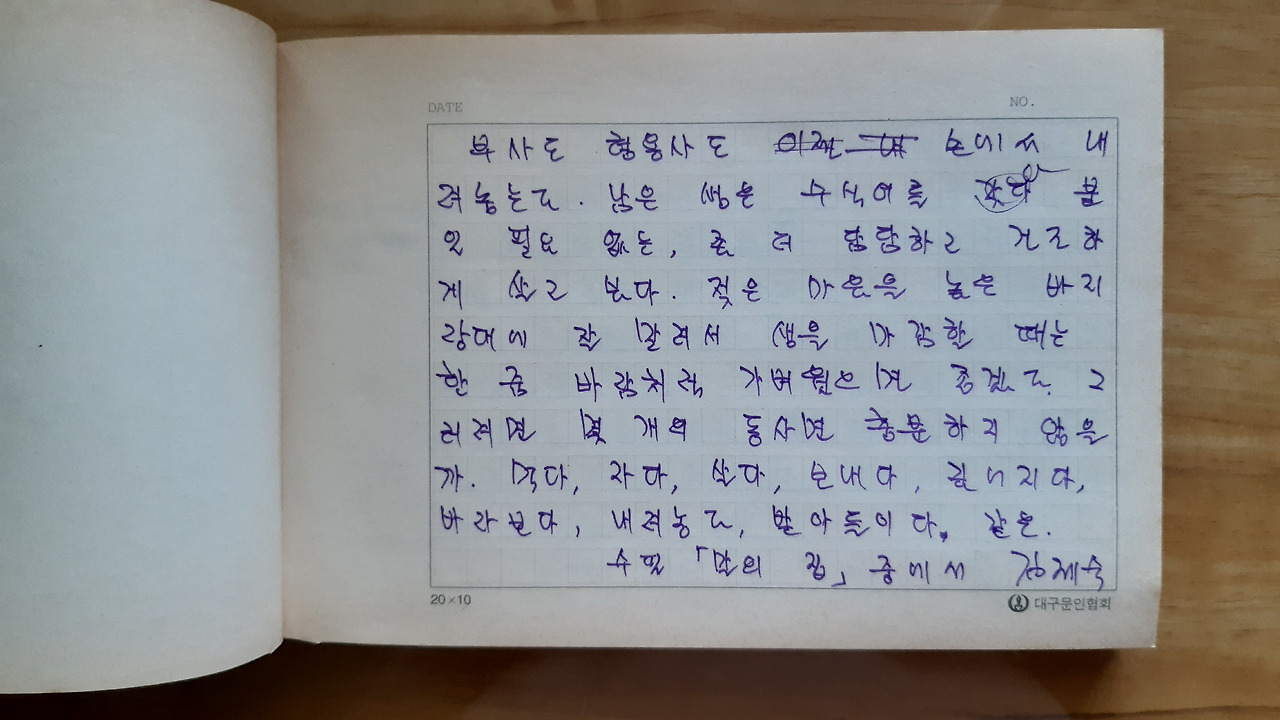 DATE NO.
부사도 형용사도 손에서 내
려놓는다. 남은 생은 수식어를 갖다 붙
일 필요 없는, 좀 더 담담하고 건조하
게 살고 싶다. 젖은 마음을 높은 바지
랑대에 잘 말려서 생을 마감할 때는
한 줌 바람처럼 가벼웠으면 좋겠다. 그
러려면 몇 개의 동사면 충분하지 않을
까. 먹다, 자다, 살다, 보내다,
바라보다, 내려놓다, 받아들이다, 같은.
수필 「말의 집」 중에서 김제숙
20×10 대구문인협회